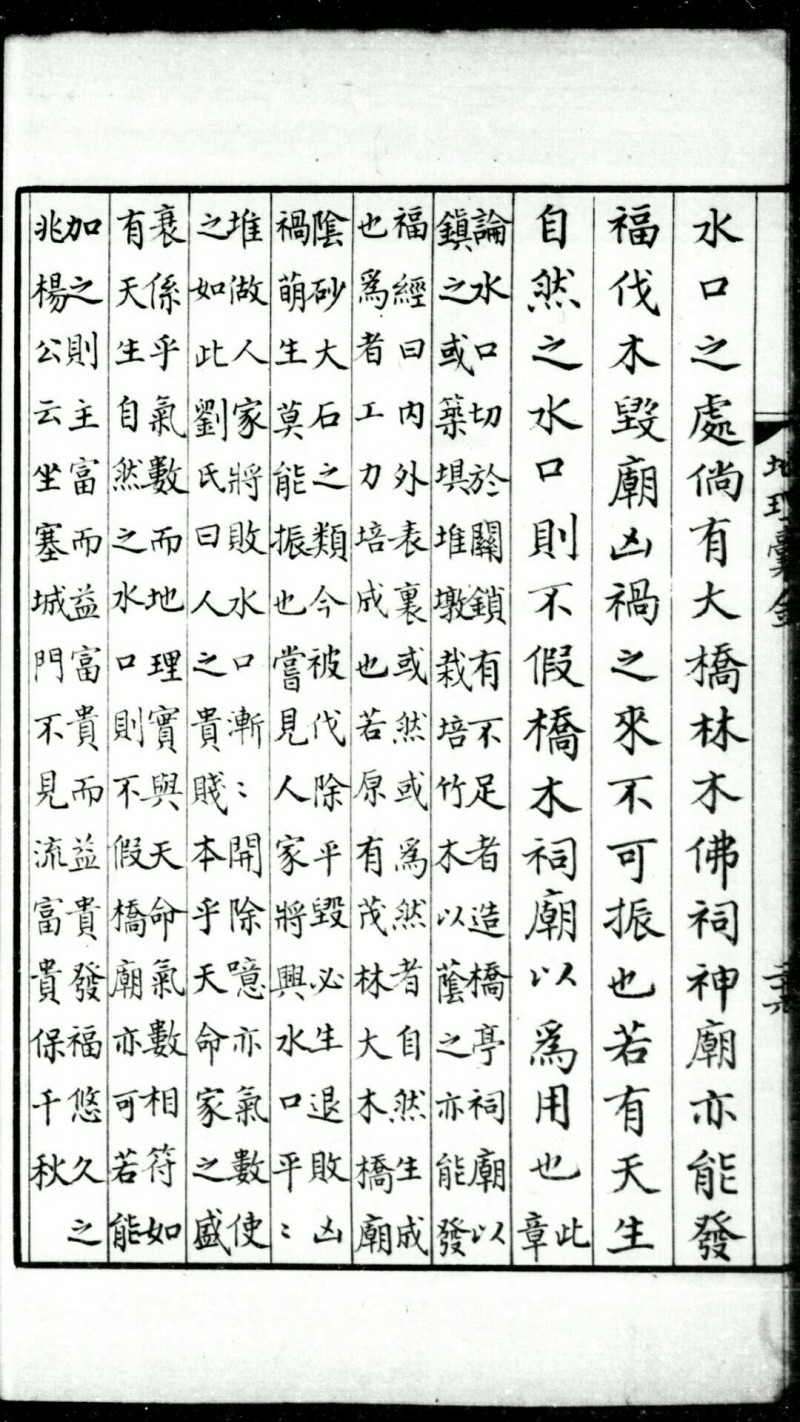 地理彙金
二十六
水口之處倘有大橋林木佛祠神廟亦能發
福伐木毀廟凶禍之來不可振也若有天生
自然之水口則不假橋木祠廟以爲用也此章
論水口切於關鎖有不足者造橋亭祠廟以
鎭之或築埧堆墩栽培竹木以蔭之亦能發
福經曰内外表裏或然或爲然者自然生成
也爲者工力培成也若原有茂林大木橋廟
陰砂大石之類今被伐除平毀必生退敗凶
禍萌生莫能振也嘗見人家將興水口平〻
堆做人家將敗水口漸〻開除噫亦氣數使
之如此劉氏曰人之貴賤本乎天命家之盛
衰係乎氣數而地理實與天命氣數相符如
有天生自然之水口則不假橋廟亦可若能
加之則主富而益富貴而益貴發福悠久之
兆楊公云坐塞城門不見流富貴保千秋